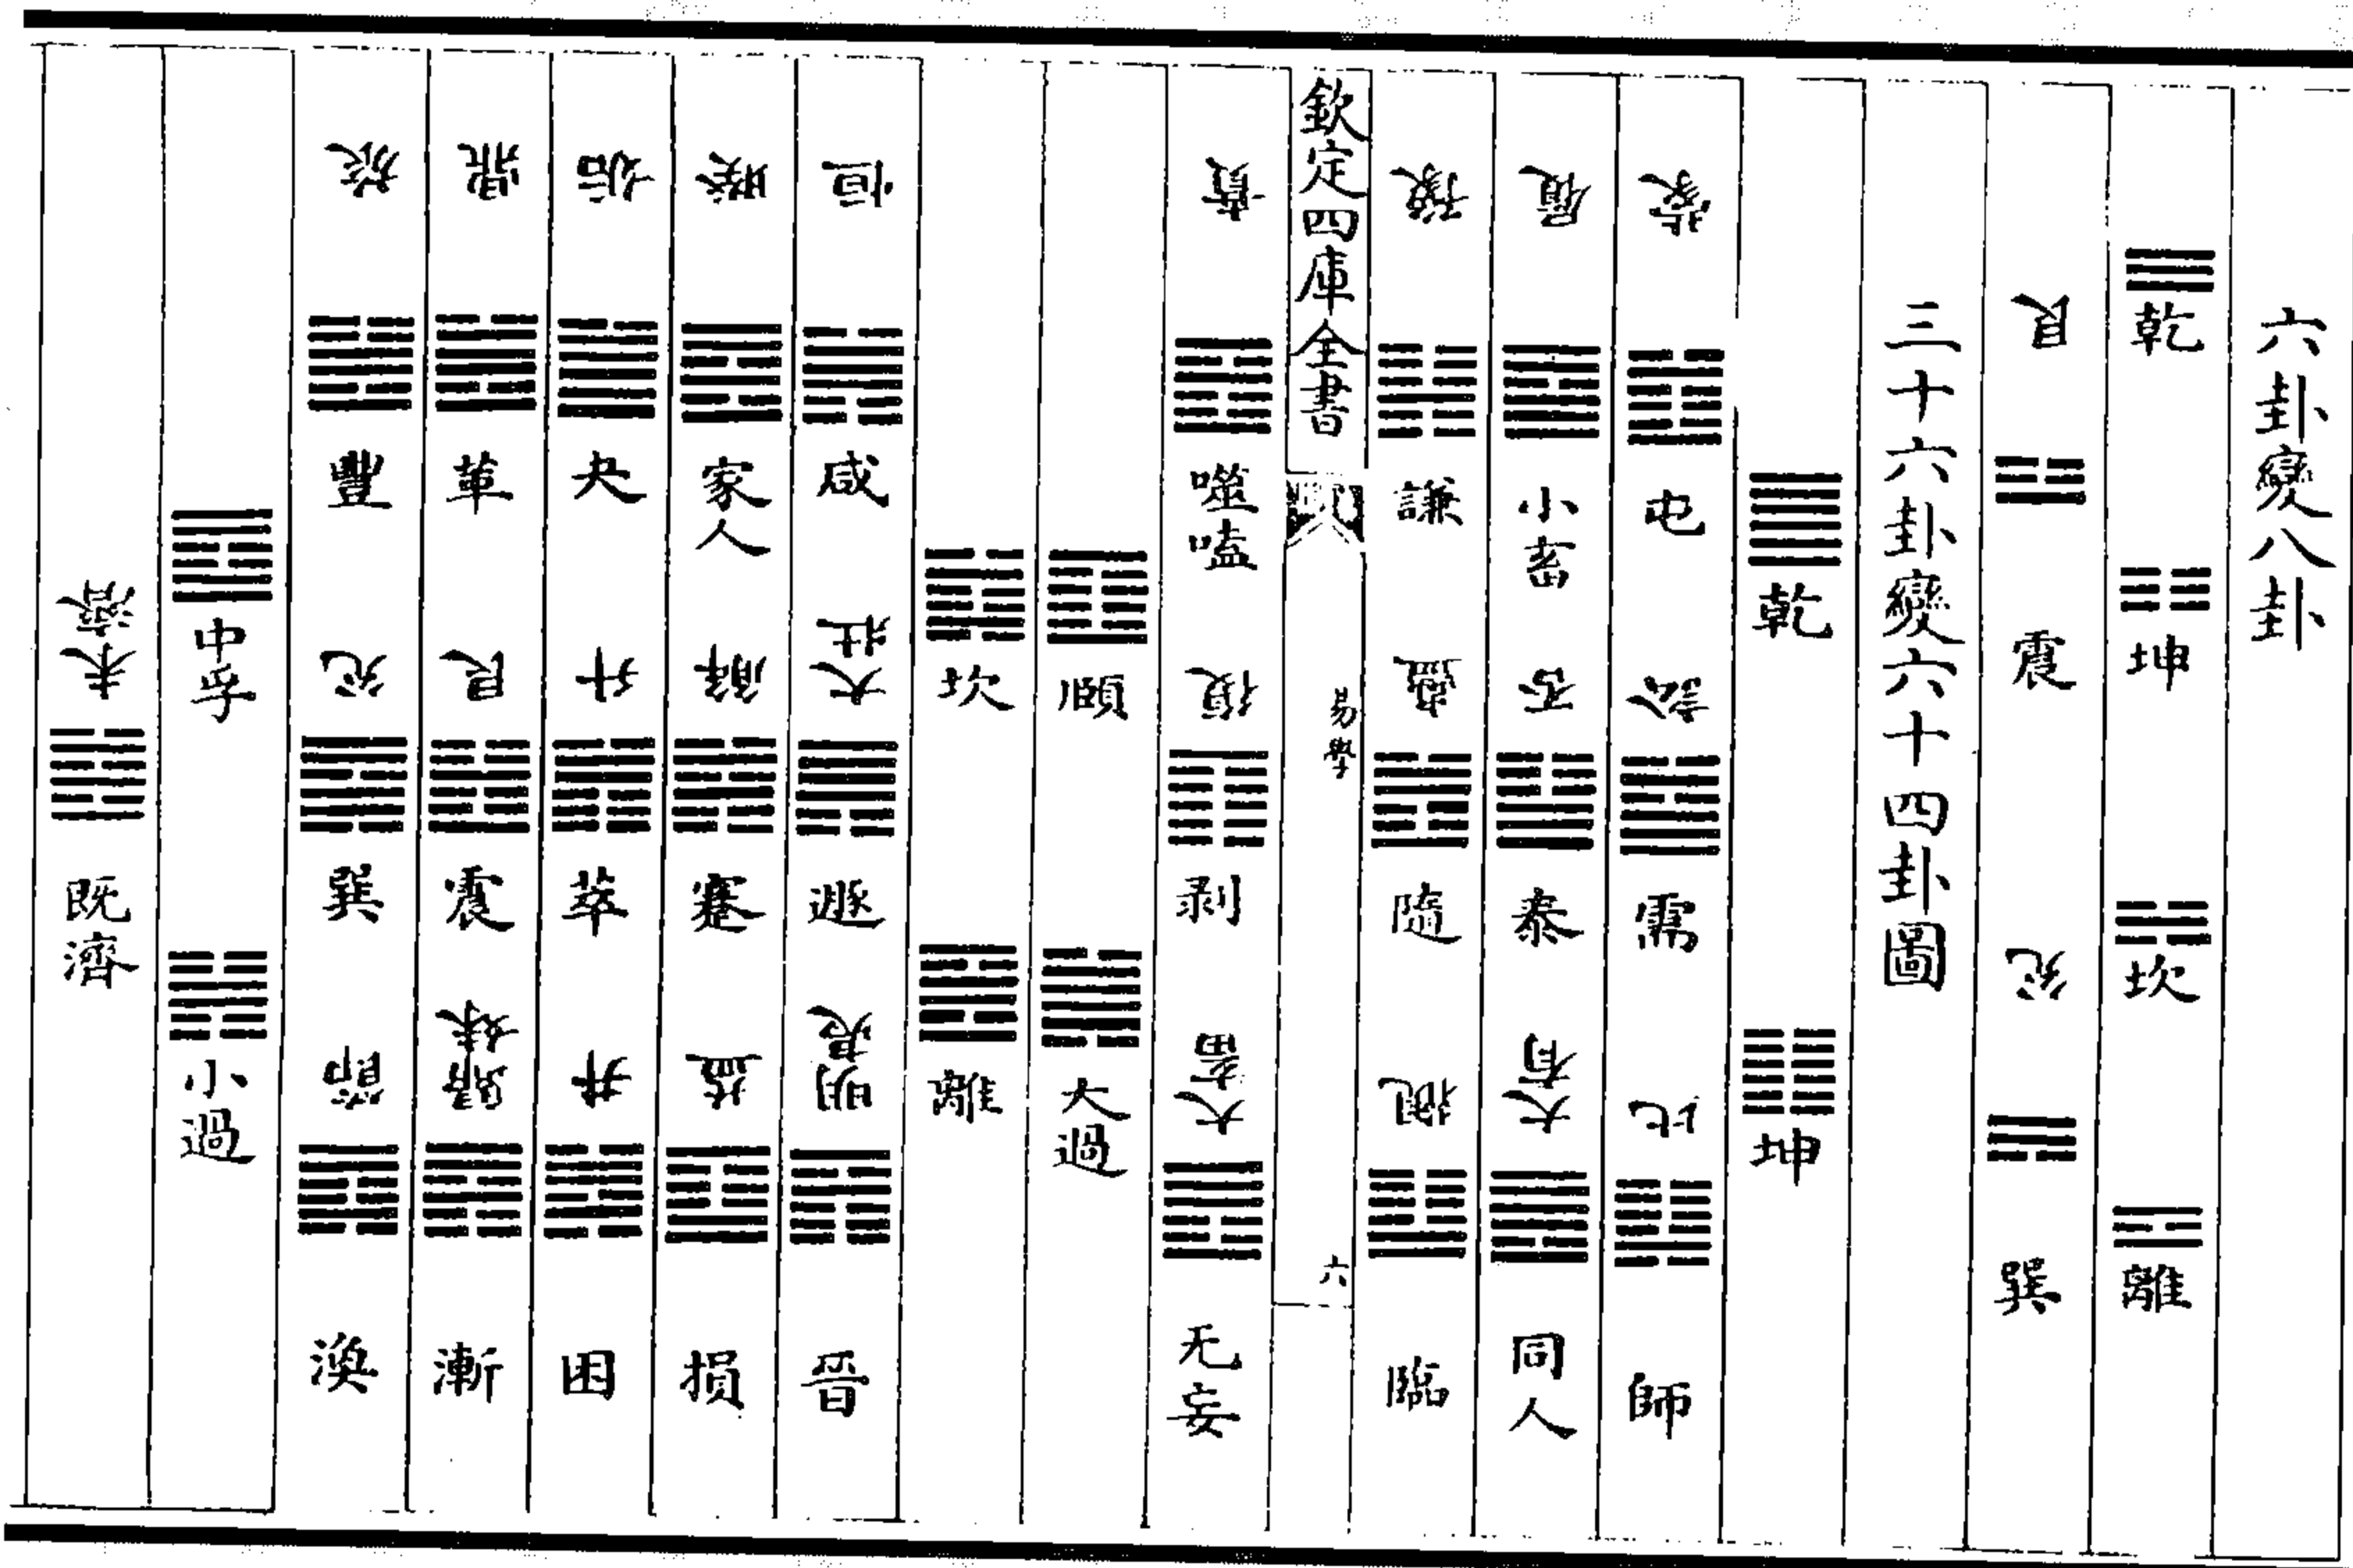 六卦變八卦
乾 坤 坎 離
艮 震 兌 巽
三十六卦變六十四卦圖
乾 坤
蒙 屯 訟 需 比 師
履 小畜 否 泰 大有 同人
豫 謙 蠱 隨 觀 臨
欽定四庫全書 易學 六
賁 噬嗑 復 剥 大畜 无妄
頤 大過
坎 離
恒 咸 大壯 遯 明夷 晉
睽 家人 解 蹇 益 損
姤 夬 升 萃 井 困
鼎 革 艮 震 歸妹 漸
旅 豐 兌 巽 節 渙
中孚 小過
未濟 既濟